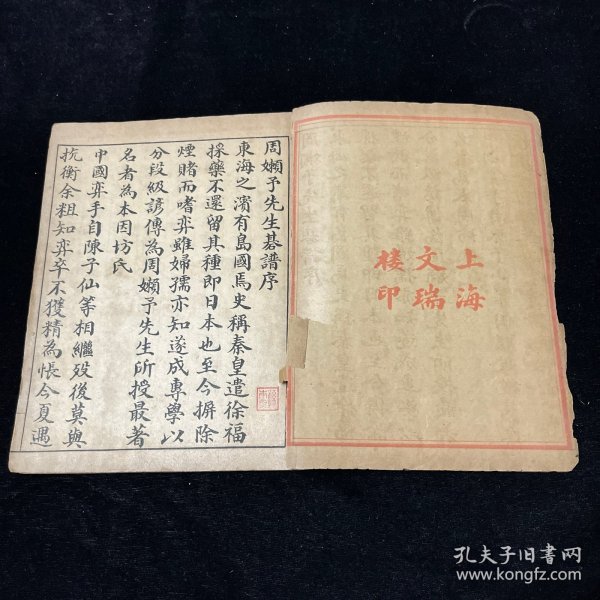 上海
文瑞
楼印
周嬾予先生碁譜序
東海之濱有島國焉史稱秦皇遣徐福
採藥不還留其種即日本也至今摒除
煙賭而嗜弈雖婦孺亦知遂成專學以
分段級諺傳為周嬾予先生所授最著
名者為本因坊氏
中國弈手自陳子仙等相繼歿後莫與
抗衡余粗知弈卒不獲精為悵今夏遇
孔夫子旧书网
www.kongfz.com